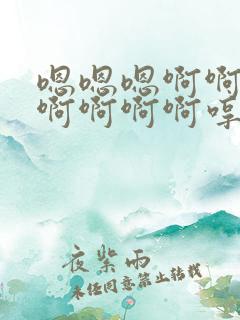 嗯嗯嗯啊啊
啊啊啊啊啍
夜紫雨
未经同意禁止转载